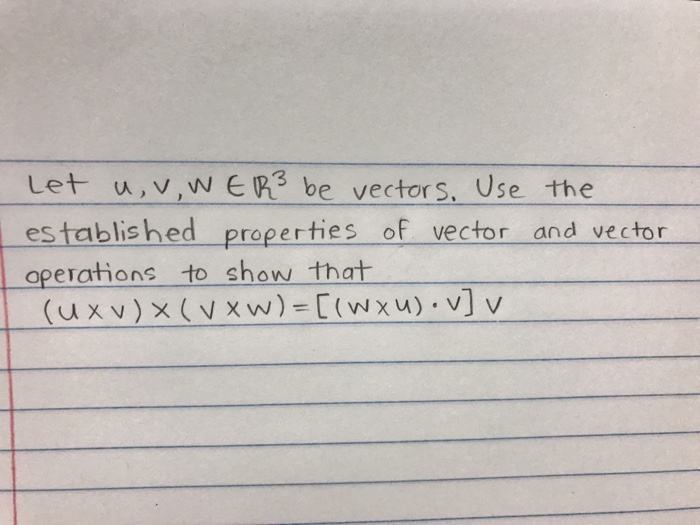 Let u, v, w ∈ ℝ³ be vectors. Use the
established properties of vector and vector
operations to show that
(u x v) x (v x w) = [(w x u) · v] v